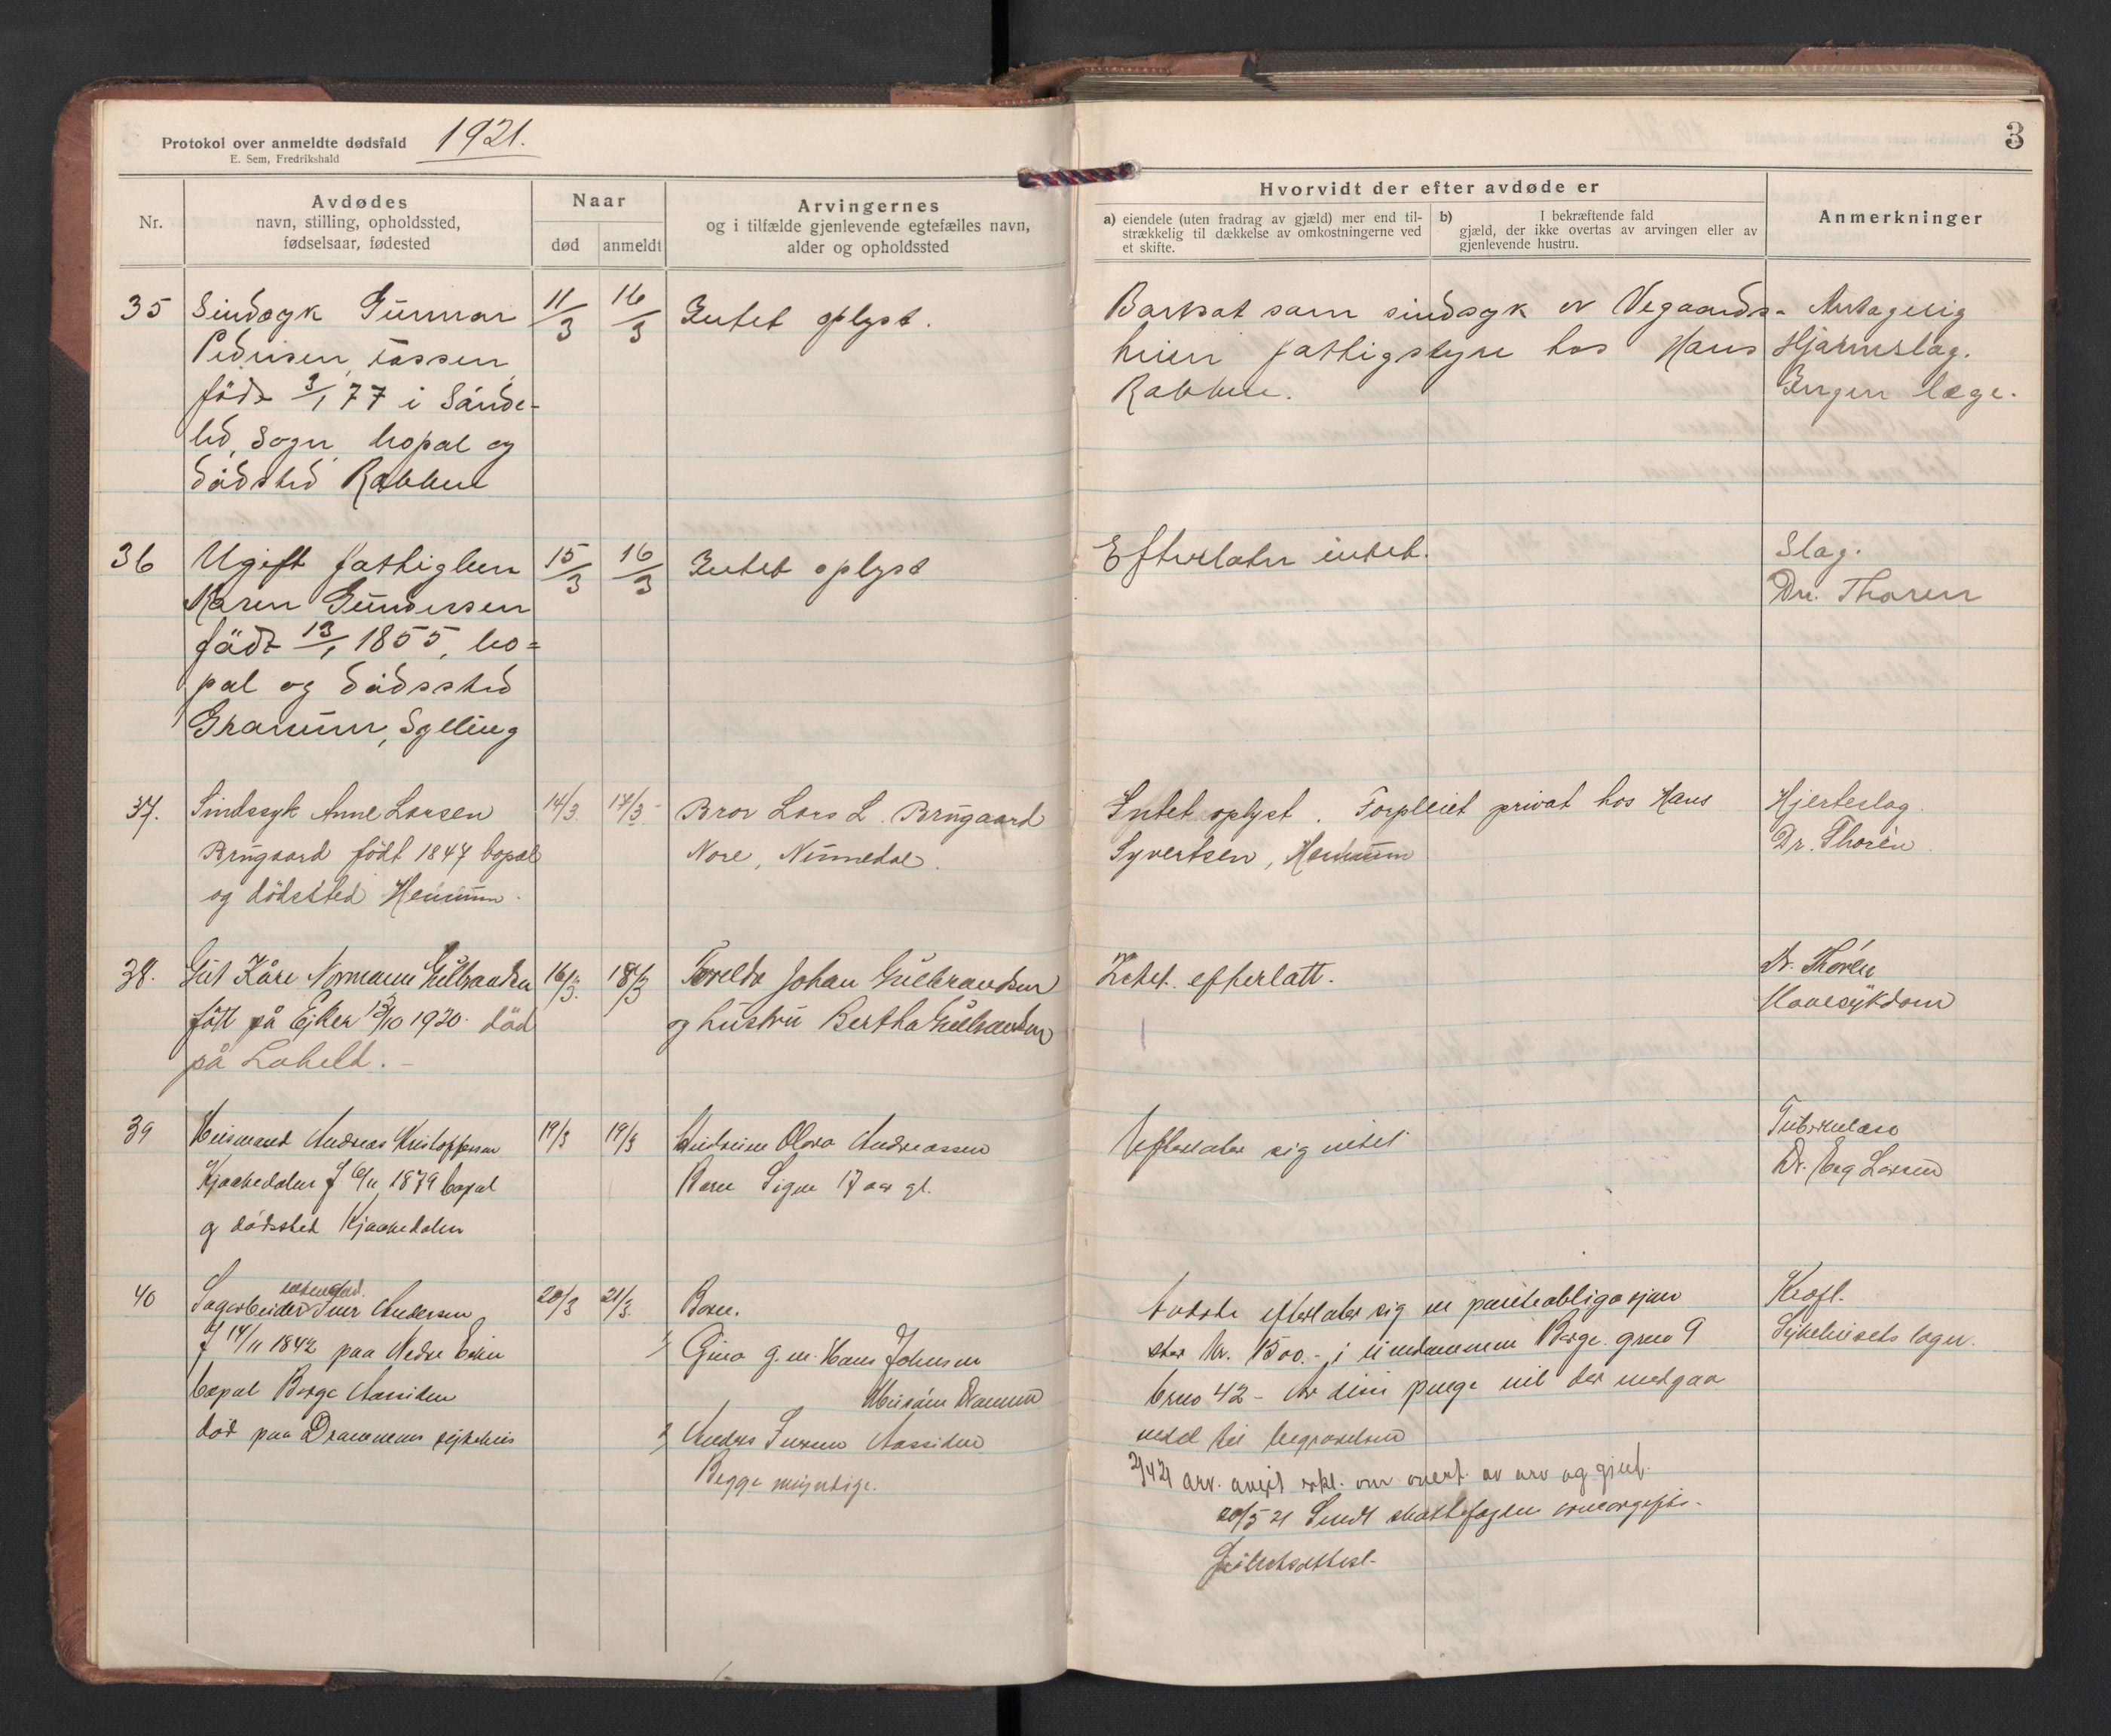 Protokol over anmeldte dødsfald 1921.
E. Sem, Fredrikshald
3
Nr.
Avdødes
navn, stilling, opholdssted,
fødselsaar, fødested
Naar
død
anmeldt
Arvingernes
og i tilfælde gjenlevende egtefælles navn,
alder og opholdssted
Hvorvidt der efter avdøde er
a) eiendele (uten fradrag av gjæld) mer end til-
strækkelig til dækkelse av omkostningerne ved
et skifte.
b) I bekræftende fald
gjæld, der ikke overtas av arvingen eller av
gjenlevende hustru.
Anmerkninger
35 Sindssyk Gunnar
Pedersen
född 3/1 77 i Sånde-
led, Sogn, bopal og
dödsted Rabben
11/3
16/3
Intet oplyst.
Bortsat som sindsyk av Vegaards-
heien fattigstyre hos Hans
Rabben.
Antagelig
Hjærneslag.
Ingen læge.
36 Ugift fattiglem
Karen Gundersen
född 13/1 1855, bo=
pal og dödssted
Granum, Sylling
15/3
16/3
Intet oplyst
Efterlater intet.
Slag.
Dr. Thoren
37. Sindssyk Anne Larsen
Brugaard födt 1847 bopæl
og dödssted Hennum.
14/3
17/3
Bror Lars L. Brugaard
Nore, Numedal.
Intet oplyst. Forpleiet privat hos Hans
Syvertsen, Hennum
Hjerteslag.
Dr. Thorén.
38. Gut Kåre Normann Gulbrandsen
fött på Eiker 13/10 1920. död
på Loheld.
16/3.
18/3
Foreldre Johan Gulbrandsen
og hustru Bertha Gulbrandsen
Intet efterlatt.
Dr. Thorén
39 Husmand Andreas Kristoffersen
1879 bopæl
og dödssted
19/3
19/3
Olava Andreassen
Barn Signe 17 aar gl.
Efterlater sig intet
Tuberkulose
Dr. Larsen
40 Sagarbeider Iver Andersen
f 14/11 1842 paa Nedre Eiker
bopæl Borge Aassiden
död paa Drammens sykehus
20/3
21/3.
Barn.
1/ Gina g.m. Hans Johnsen
2/ Anders Iversen Aassiden
Begge myndige.
Avdöde efterlater sig en panteobligasjon
stor kr. 1500.- i eiendommen Borge. gno 9
bno 42 - Av disse penge vil der medgaa
endel til begravelsen
arv. avgit erkl. om overt. av arv og gjel.
20/5 21 Sendt skattefogden
Sykehusets læger.